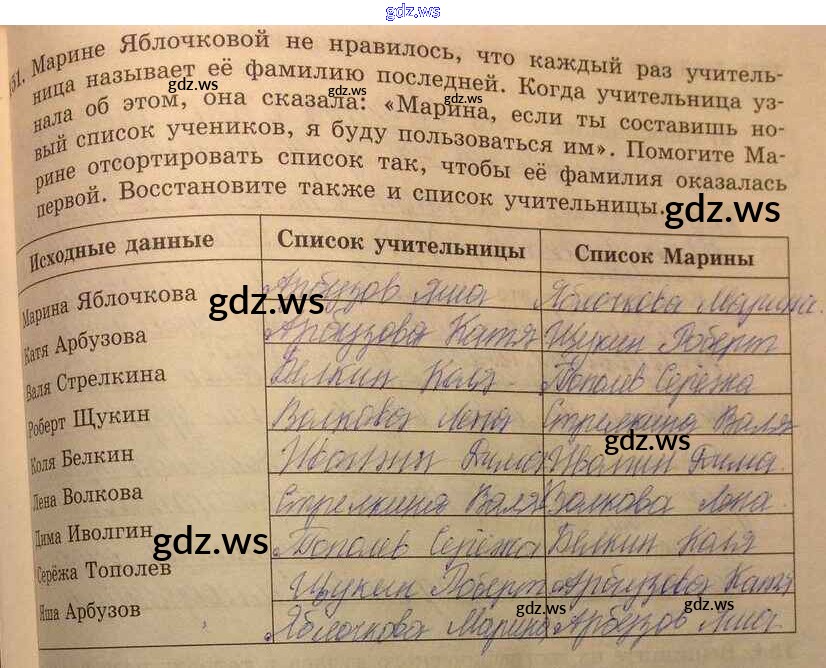 gdz.ws
51. Марине Яблочковой не нравилось, что каждый раз учитель-
ница называет её фамилию последней. Когда учительница уз-
gdz.ws
gdz.ws
нала об этом, она сказала: «Марина, если ты составишь но-
вый список учеников, я буду пользоваться им». Помогите Ма-
рине отсортировать список так, чтобы её фамилия оказалась
первой. Восстановите также и список учительницы.
gdz.ws
Исходные данные Список учительницы Список Марины
Марина Яблочкова Арбузов Яша Яблочкова Марина.
gdz.ws
Катя Арбузова Арбузова Катя Щукин Роберт
Валя Стрелкина Белкин Коля Тополев Серёжа
Роберт Щукин Волкова Лена Стрелкина Валя
gdz.ws
Коля Белкин Иволгин Дима Иволгин Дима.
Лена Волкова Стрелкина Валя Волкова Лена.
gdz.ws
Дима Иволгин Тополев Серёжа Белкин Коля
Серёжа Тополев Щукин Роберт Арбузова Катя
gdz.ws
gdz.ws
Яша Арбузов Яблочкова Марина Арбузов Яша.